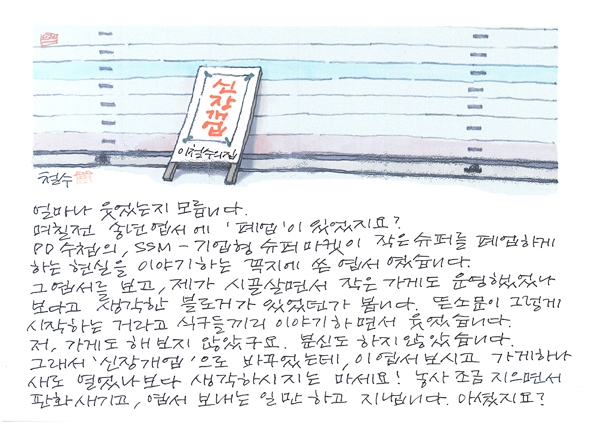 신장개업
이철수의집
철수
얼마나 웃었는지 모릅니다.
며칠전 송년엽서에 '폐업'이 있었지요?
PD수첩의, SSM-기업형 슈퍼마켓이 작은슈퍼를 폐업하게
하는 현실을 이야기하는 꼭지에 쓴 엽서였습니다.
그엽서를 보고, 제가 시골살면서 작은 가게도 운영했었나
보다고 생각한 블로거가 있었던가 봅니다. 뜬소문이 그렇게
시작하는 거라고 식구들끼리 이야기하면서 웃었습니다.
저, 가게도 해보지 않았구요. 분신도 하지 않았습니다.
그래서 '신장개업'으로 바꾸었는데, 이엽서보시고 가게하나
새로 열었나보다 생각하시지는 마세요! 농사 조금 지으면서
판화새기고, 엽서 보내는 일만 하고 지냅니다. 아셨지요?